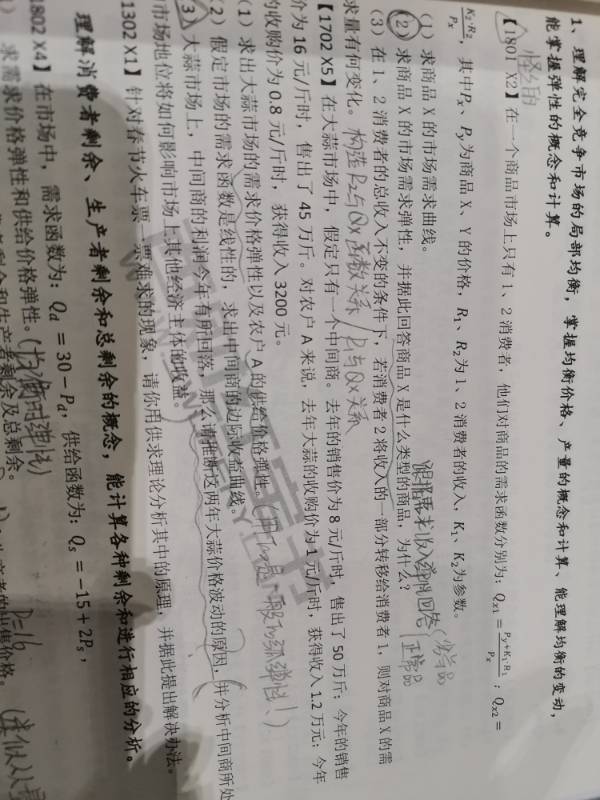 1、理解完全竞争市场的局部均衡，掌握均衡价格、产量的概念和计算、能理解均衡的变动，
能掌握弹性的概念和计算。
【1801 X2】在一个商品市场上只有 1、2 消费者，他们对商品的需求函数分别为：Qx1 = (Py+K1·R1)/Px；Qx2 =
K2·R2/Px，其中Px、Py为商品 X、Y 的价格，R1、R2为 1、2 消费者的收入，K1、K2为参数。
（1）求商品 X 的市场需求曲线。
（2）求商品 X 的市场需求弹性，并据此回答商品 X 是什么类型的商品，为什么？
（3）在 1、2 消费者的总收入不变的条件下，若消费者 2 将收入的一部分转移给消费者 1，则对商品 X 的需
求量有何变化。
【1702 X5】在大蒜市场中，假定只有一个中间商。去年的销售价为 8 元/斤时，售出了 50 万斤；今年的销售
价为 16 元/斤时，售出了 45 万斤。对农户 A 来说，去年大蒜的收购价为 1 元/斤时，获得收入 1.2 万元；今年
的收购价为 0.8 元/斤时，获得收入 3200 元。
（1）求出大蒜市场的需求价格弹性以及农户 A 的供给价格弹性。
（2）假定市场的需求函数是线性的，求出中间商的边际收益曲线。
（3）大蒜市场上，中间商的利润今年有所回落，那么请推断这两年大蒜价格波动的原因，并分析中间商所处
的市场地位将如何影响市场上其他经济主体的收益。
1302 X1】针对春节火车票一票难求的现象，请你用供求理论分析其中的原理，并据此提出解决办法。
理解消费者剩余、生产者剩余和总剩余的概念，能计算各种剩余和进行相应的分析。
1802 X4】在市场中，需求函数为：Qd = 30 − Pd，供给函数为：Qs = −15 + 2Ps，
求需求价格弹性和供给价格弹性。
P=16